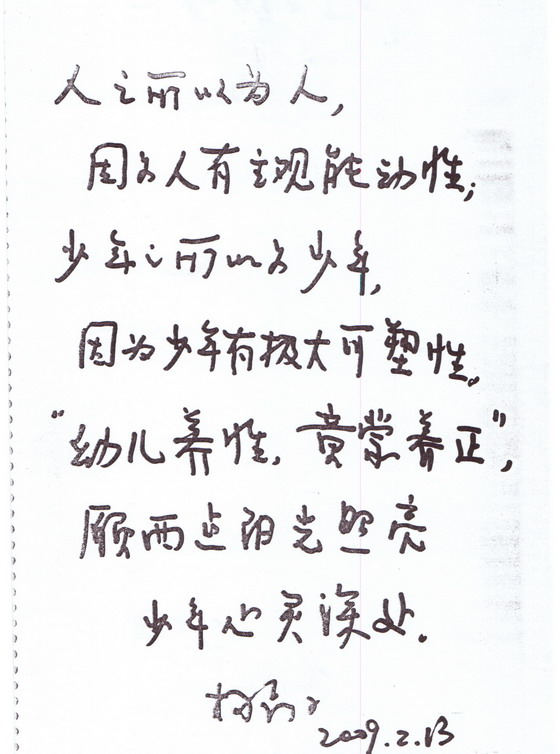 人之所以为人,
因为人有主观能动性;
少年之所以为少年,
因为少年有极大可塑性。
"幼儿养性, 童蒙养正",
愿西点阳光照亮
少年心灵深处.
2009.2.13